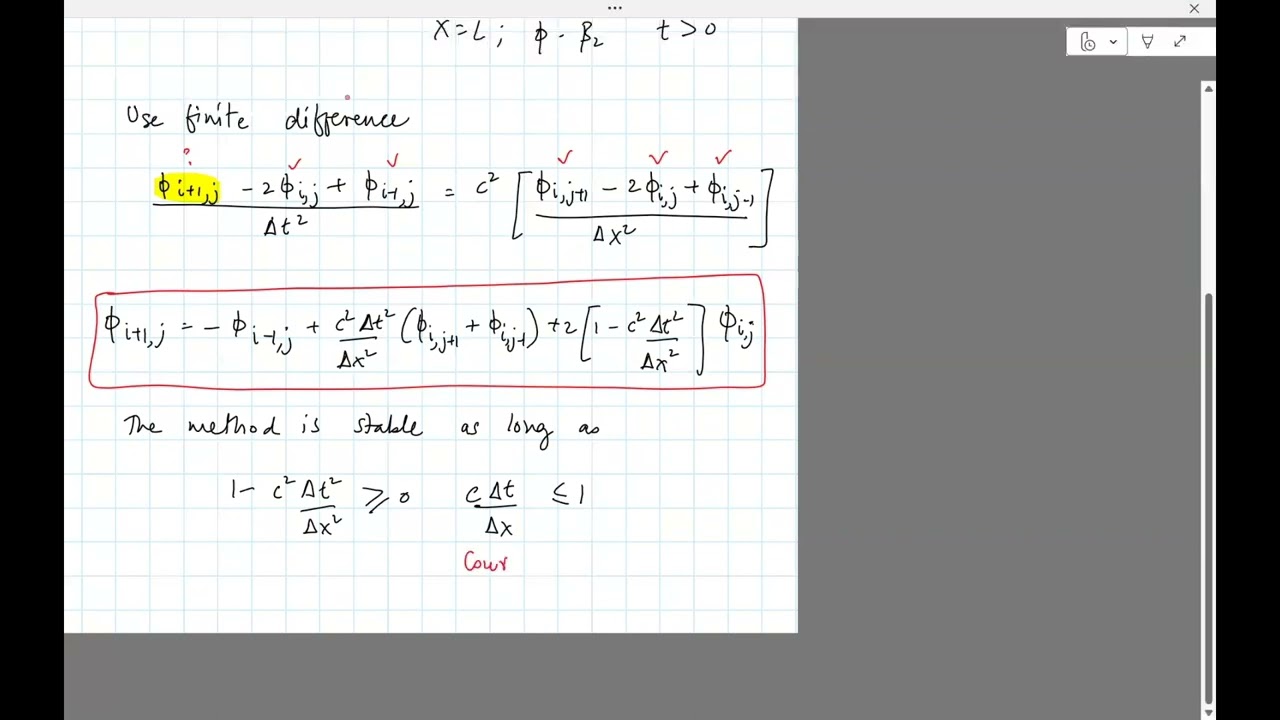 x=L ; ϕ - β₂ t > 0
Use finite difference
? ✓ ✓ ✓ ✓ ✓
(ϕ_{i+1,j} - 2ϕ_{i,j} + ϕ_{i-1,j}) / Δt² = c² [ (ϕ_{i,j+1} - 2ϕ_{i,j} + ϕ_{i,j-1}) / Δx² ]
ϕ_{i+1,j} = - ϕ_{i-1,j} + c²Δt²/Δx² (ϕ_{i,j+1} + ϕ_{i,j-1}) + 2 [ 1 - c² Δt²/Δx² ] ϕ_{i,j}
The method is stable as long as
1 - c² Δt²/Δx² ⩾ 0 cΔt/Δx ≤ 1
Cour